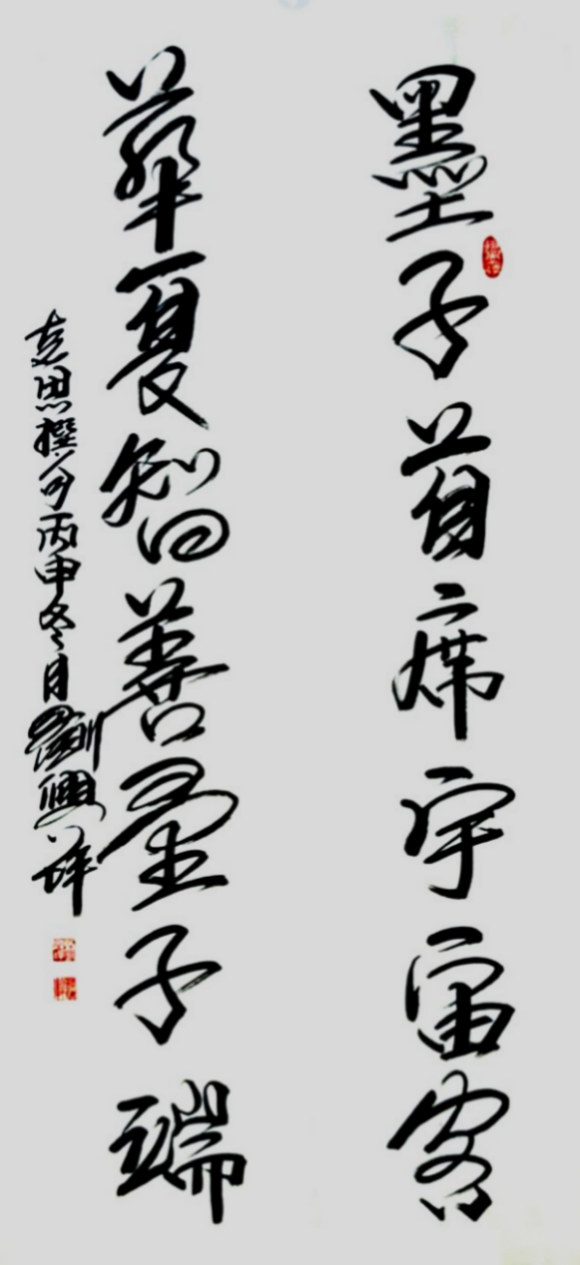 墨子首席宇宙客
華夏智善量子瑞
思撰句丙申冬月劉興祥